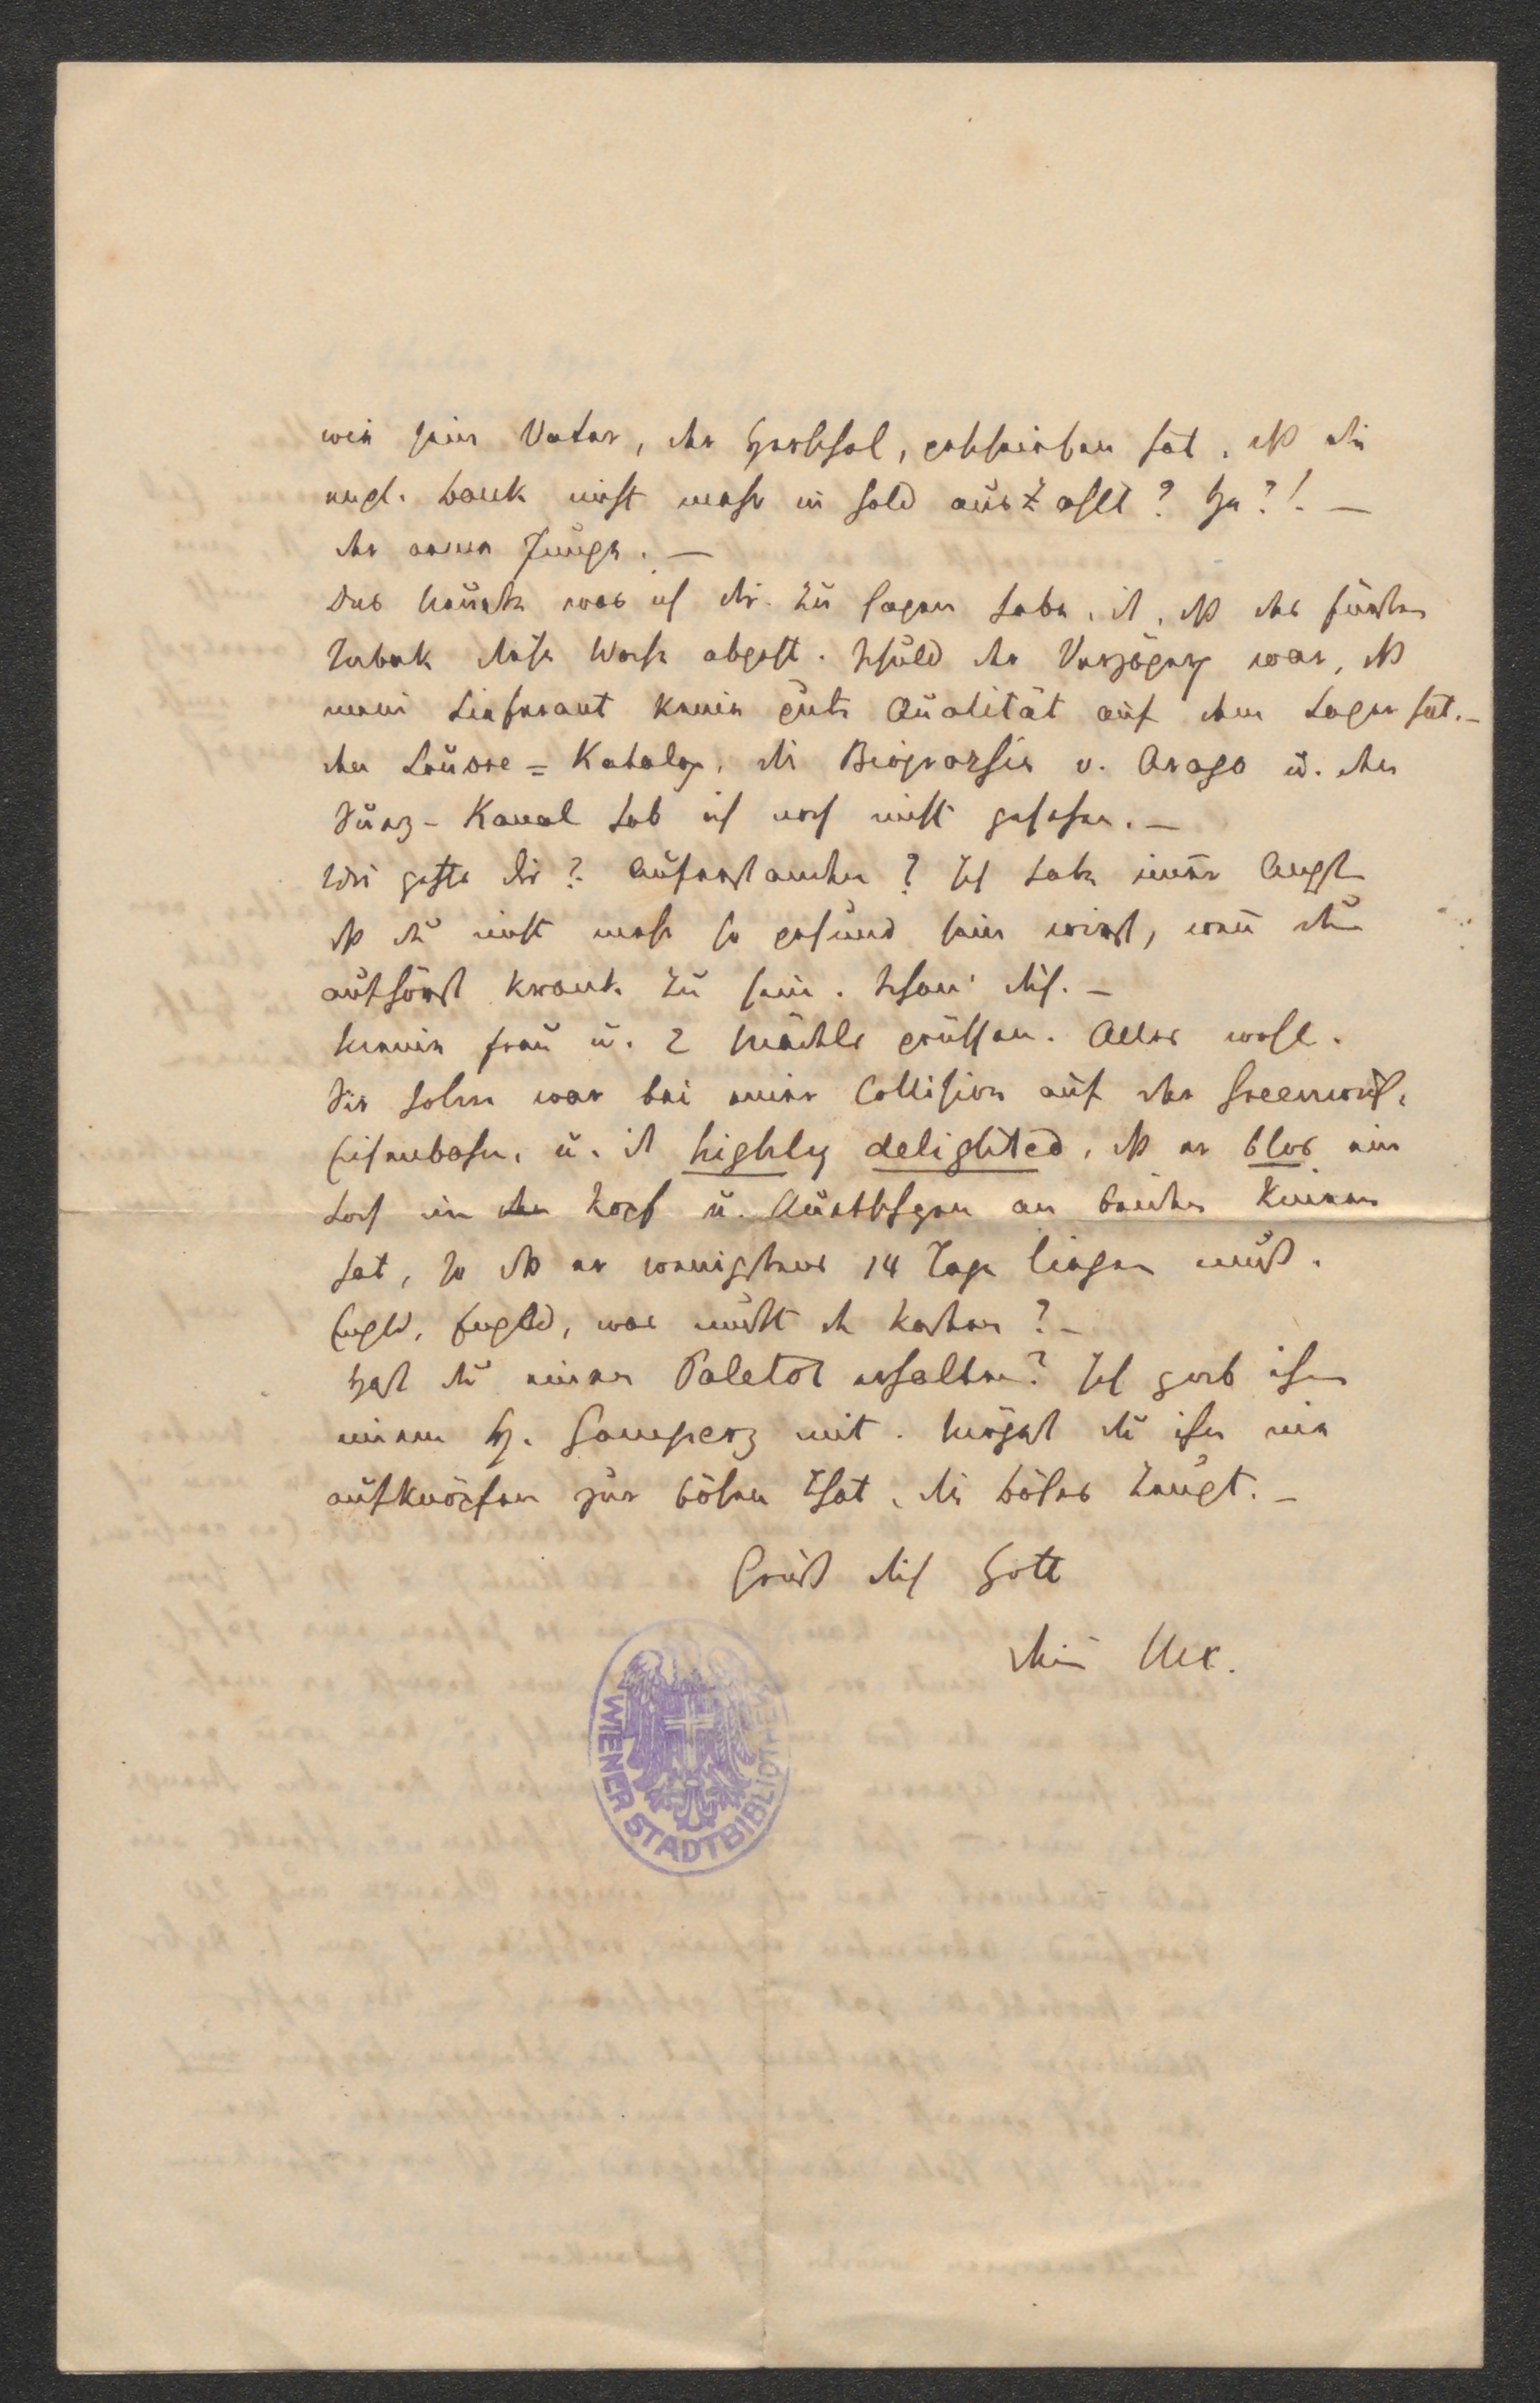 wie sein Vater, der Herschel, geschrieben hat, dß die
engl. Bank nicht mehr in Gold auszahlt? He?! —
der arme Junge. —
Das Neueste was ich dir zu sagen habe, ist, dß das Fürsten
Tabak diese Woche abgeht. Schuld der Verzögerg war, dß
mein Lieferant keine gute Qualität auf dem Lager hat. —
den Louvre = Katalog, die Biographie v. Arago u. den
Suez - Kanal hab ich noch nicht gesehen. —
Wie gehts dir? Auferstanden? Ich habe immer Angst
dß du nicht mehr so gesund sein wirst, wenn du
aufhörst krank zu sein. Schon' dich. —
Meine Frau u. 2 Mädls grüssen. Alles wohl.
Sir John war bei einer Collision auf der Greenwich,
Eisenbahn, u. ist highly delighted, dß er blos ein
Loch im Kopf u. an beiden Knieen
hat, so dß er wenigstens 14 Tage liegen muß.
Engld, Engld, was mußt du kosten? —
Hast du einen Paletot erhalten? Ich gab ihn
einem H. Gomperz mit. Mögest du ihn nie
aufknöpfen zur bösen That, die böses zeugt. —
Grüß dich Gott
dein Max.
WIENER STADTBIBLIOTHEK